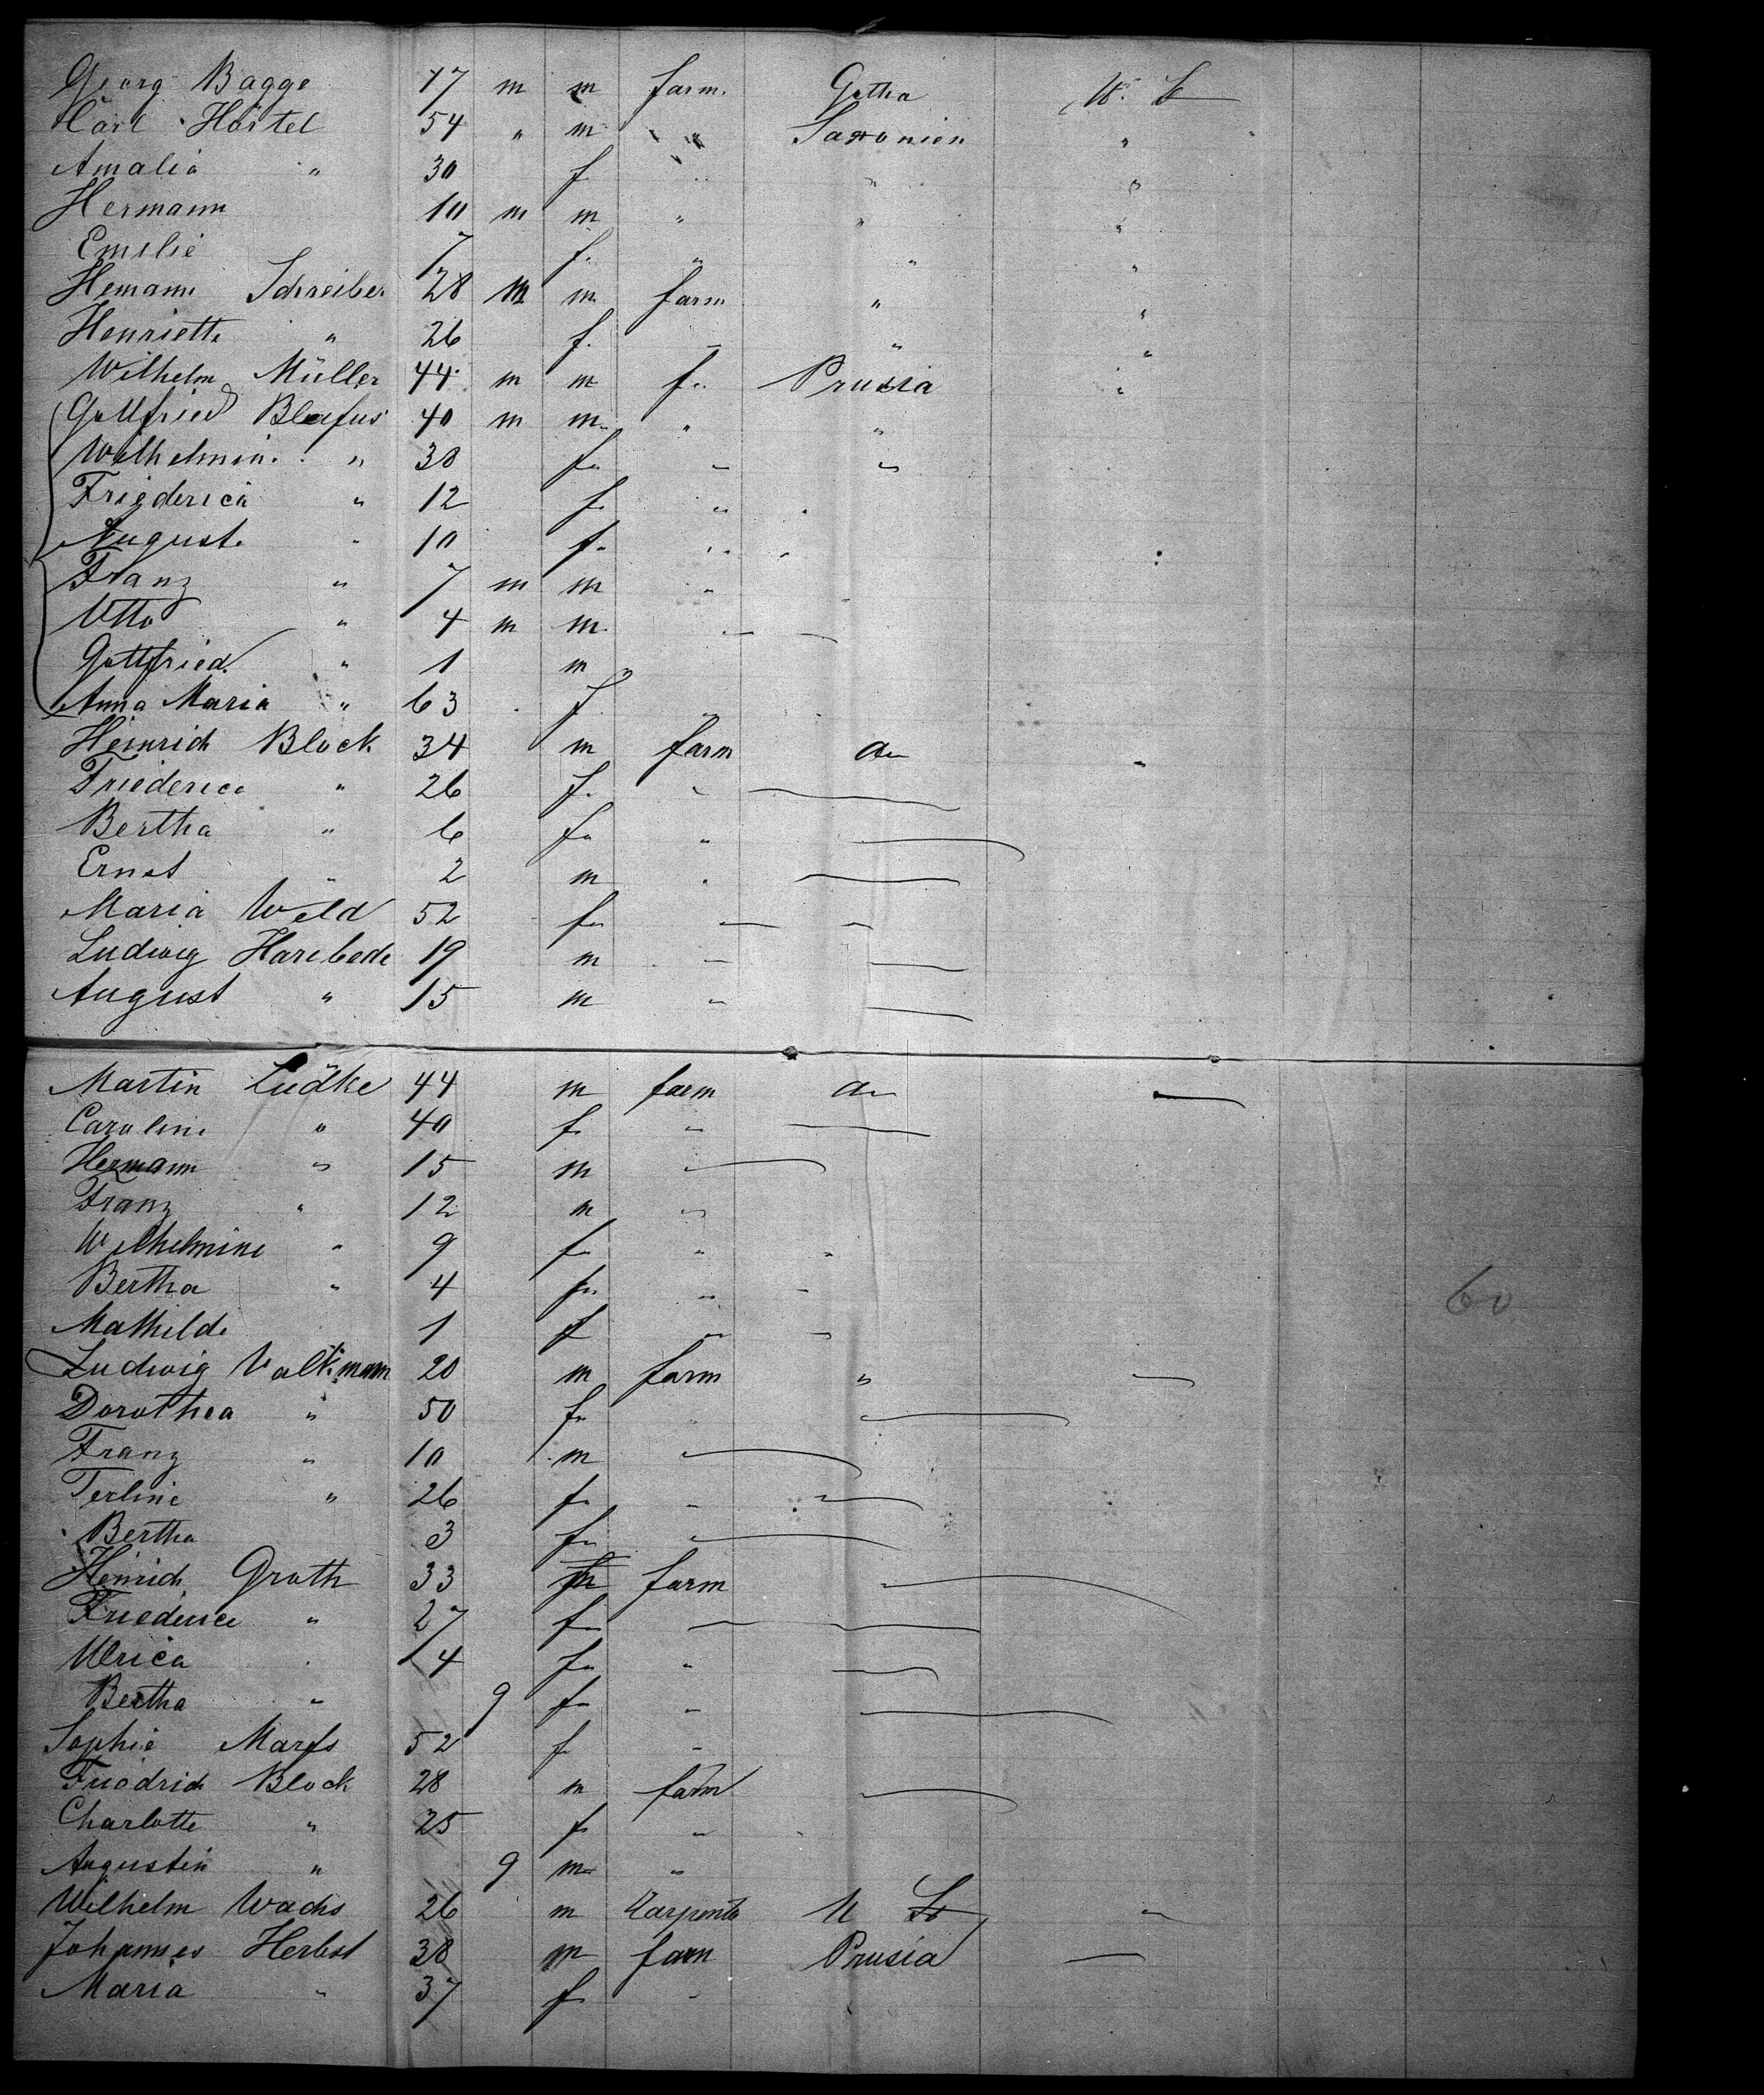 Georg Bagge 47 m m farm. Gotha U. S
Carl Hörtel 54 " m " Saxonien "
Amalia " 30 f " " "
Hermann 10 m m " " "
Emilie 7 f. " " "
Hemann Schreiber 28 m m farm " "
Henriette " 26 f. " " "
Wilhelm Müller 44 m m f" Prussia "
Gottfried Blafus 40 m m " "
Wilhelmin. " 38 f " "
Friederica " 12 f "
August. " 10 f " "
Franz " 7 m m "
Otto " 4 m m "
Gottfried " 1 m "
Anna Maria " 63 f "
Heinrich Block 34 m farm do "
Friederica " 26 f. "
Bertha " 6 f "
Ernst " 2 m "
Maria Wild 52 f
Ludwig Harebede 19 m "
August " 15 m "
Martin Ludke 44 m farm do
Carolin. " 40 f "
Hermann " 15 m "
Franz " 12 m "
Wilhelmine " 9 f " "
Bertha " 4 f " "
Mathilde 1 f " "
60
Ludwig Volkmann 20 m farm "
Dorothea " 50 f "
Franz " 10 m "
Terline " 26 f "
Bertha 3 f "
Heinrich Groth 33 m farm "
Friederice " 27 f
Ulrica 4 f "
Bertha " 9 f "
Sophie 52 f "
Friedrich Block 28 m farm
Charlotte " 25 f "
Augustin " 9 m "
Wilhelm Wachs 26 m Carpenter U St "
Johannes Herbst 38 m farm Prusia
Maria " 37 f "